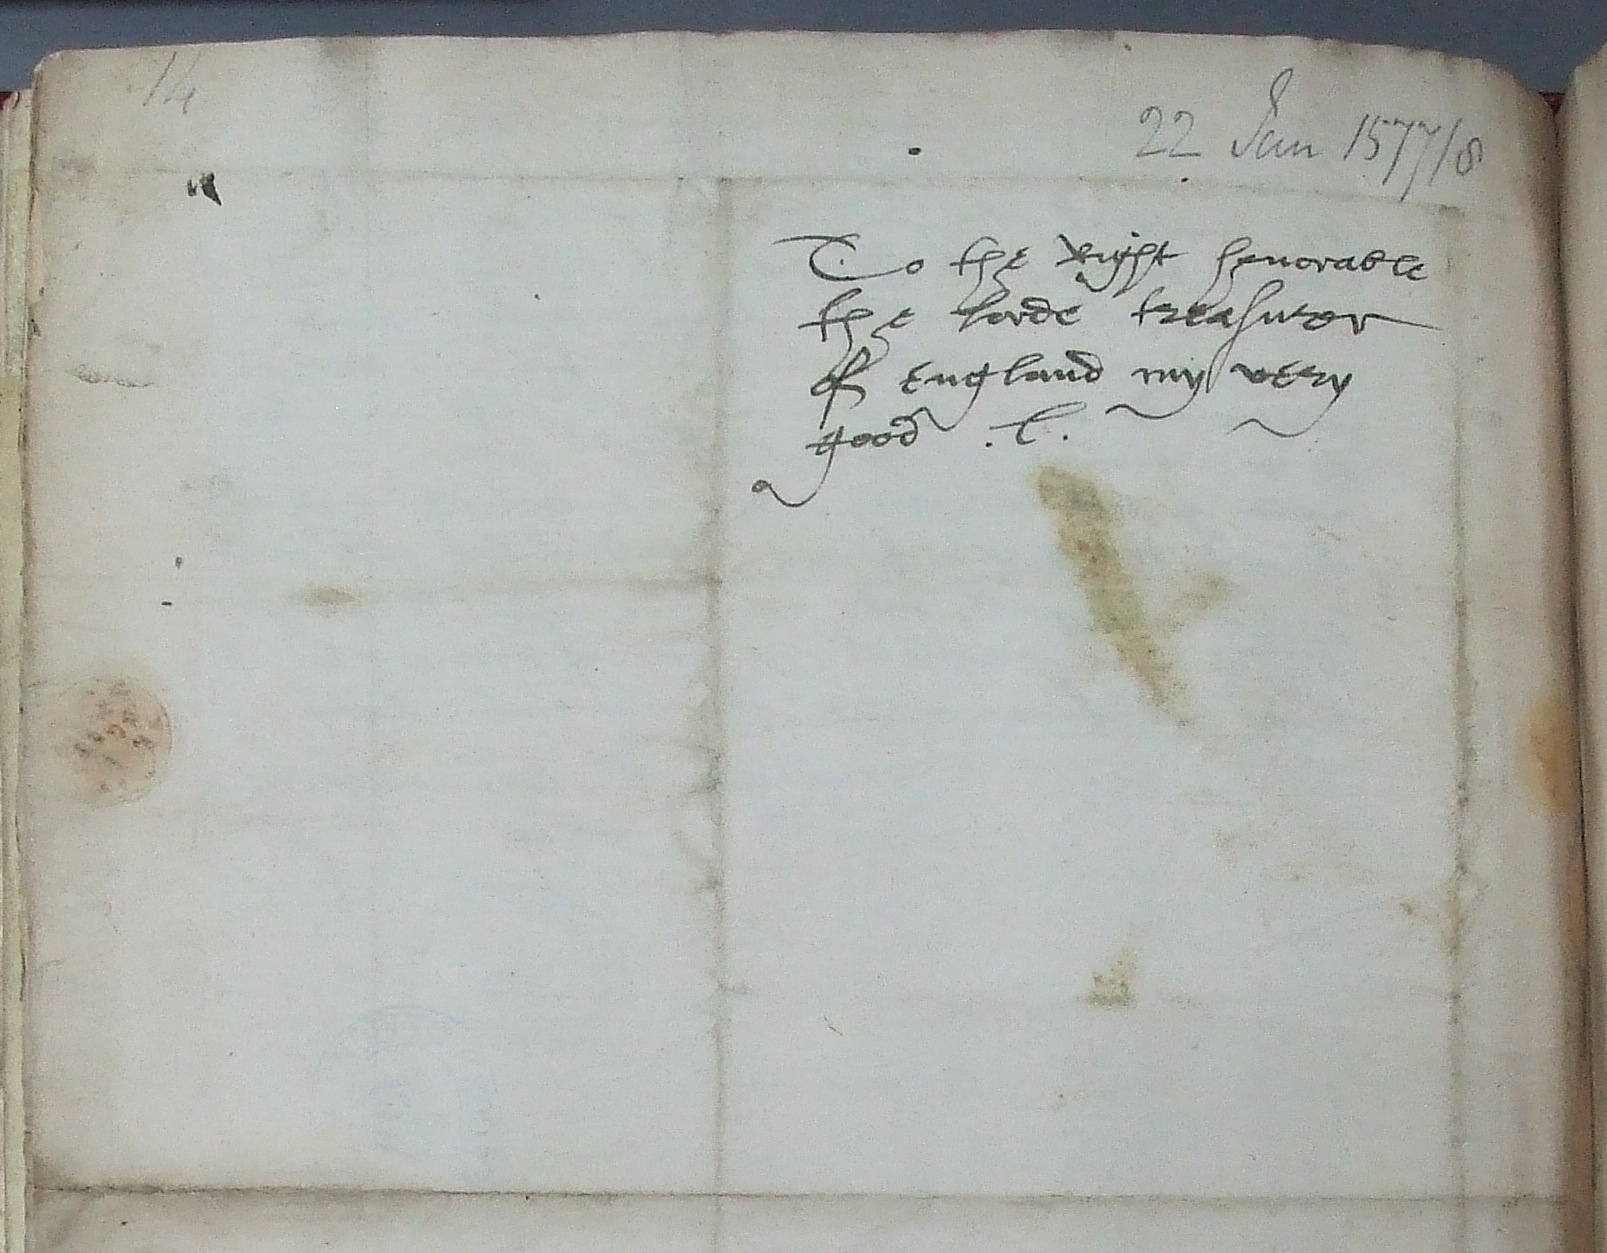 14
22 Jan 1577/8
To the Right honorable
the lorde treasurer
of england my very
good .L.